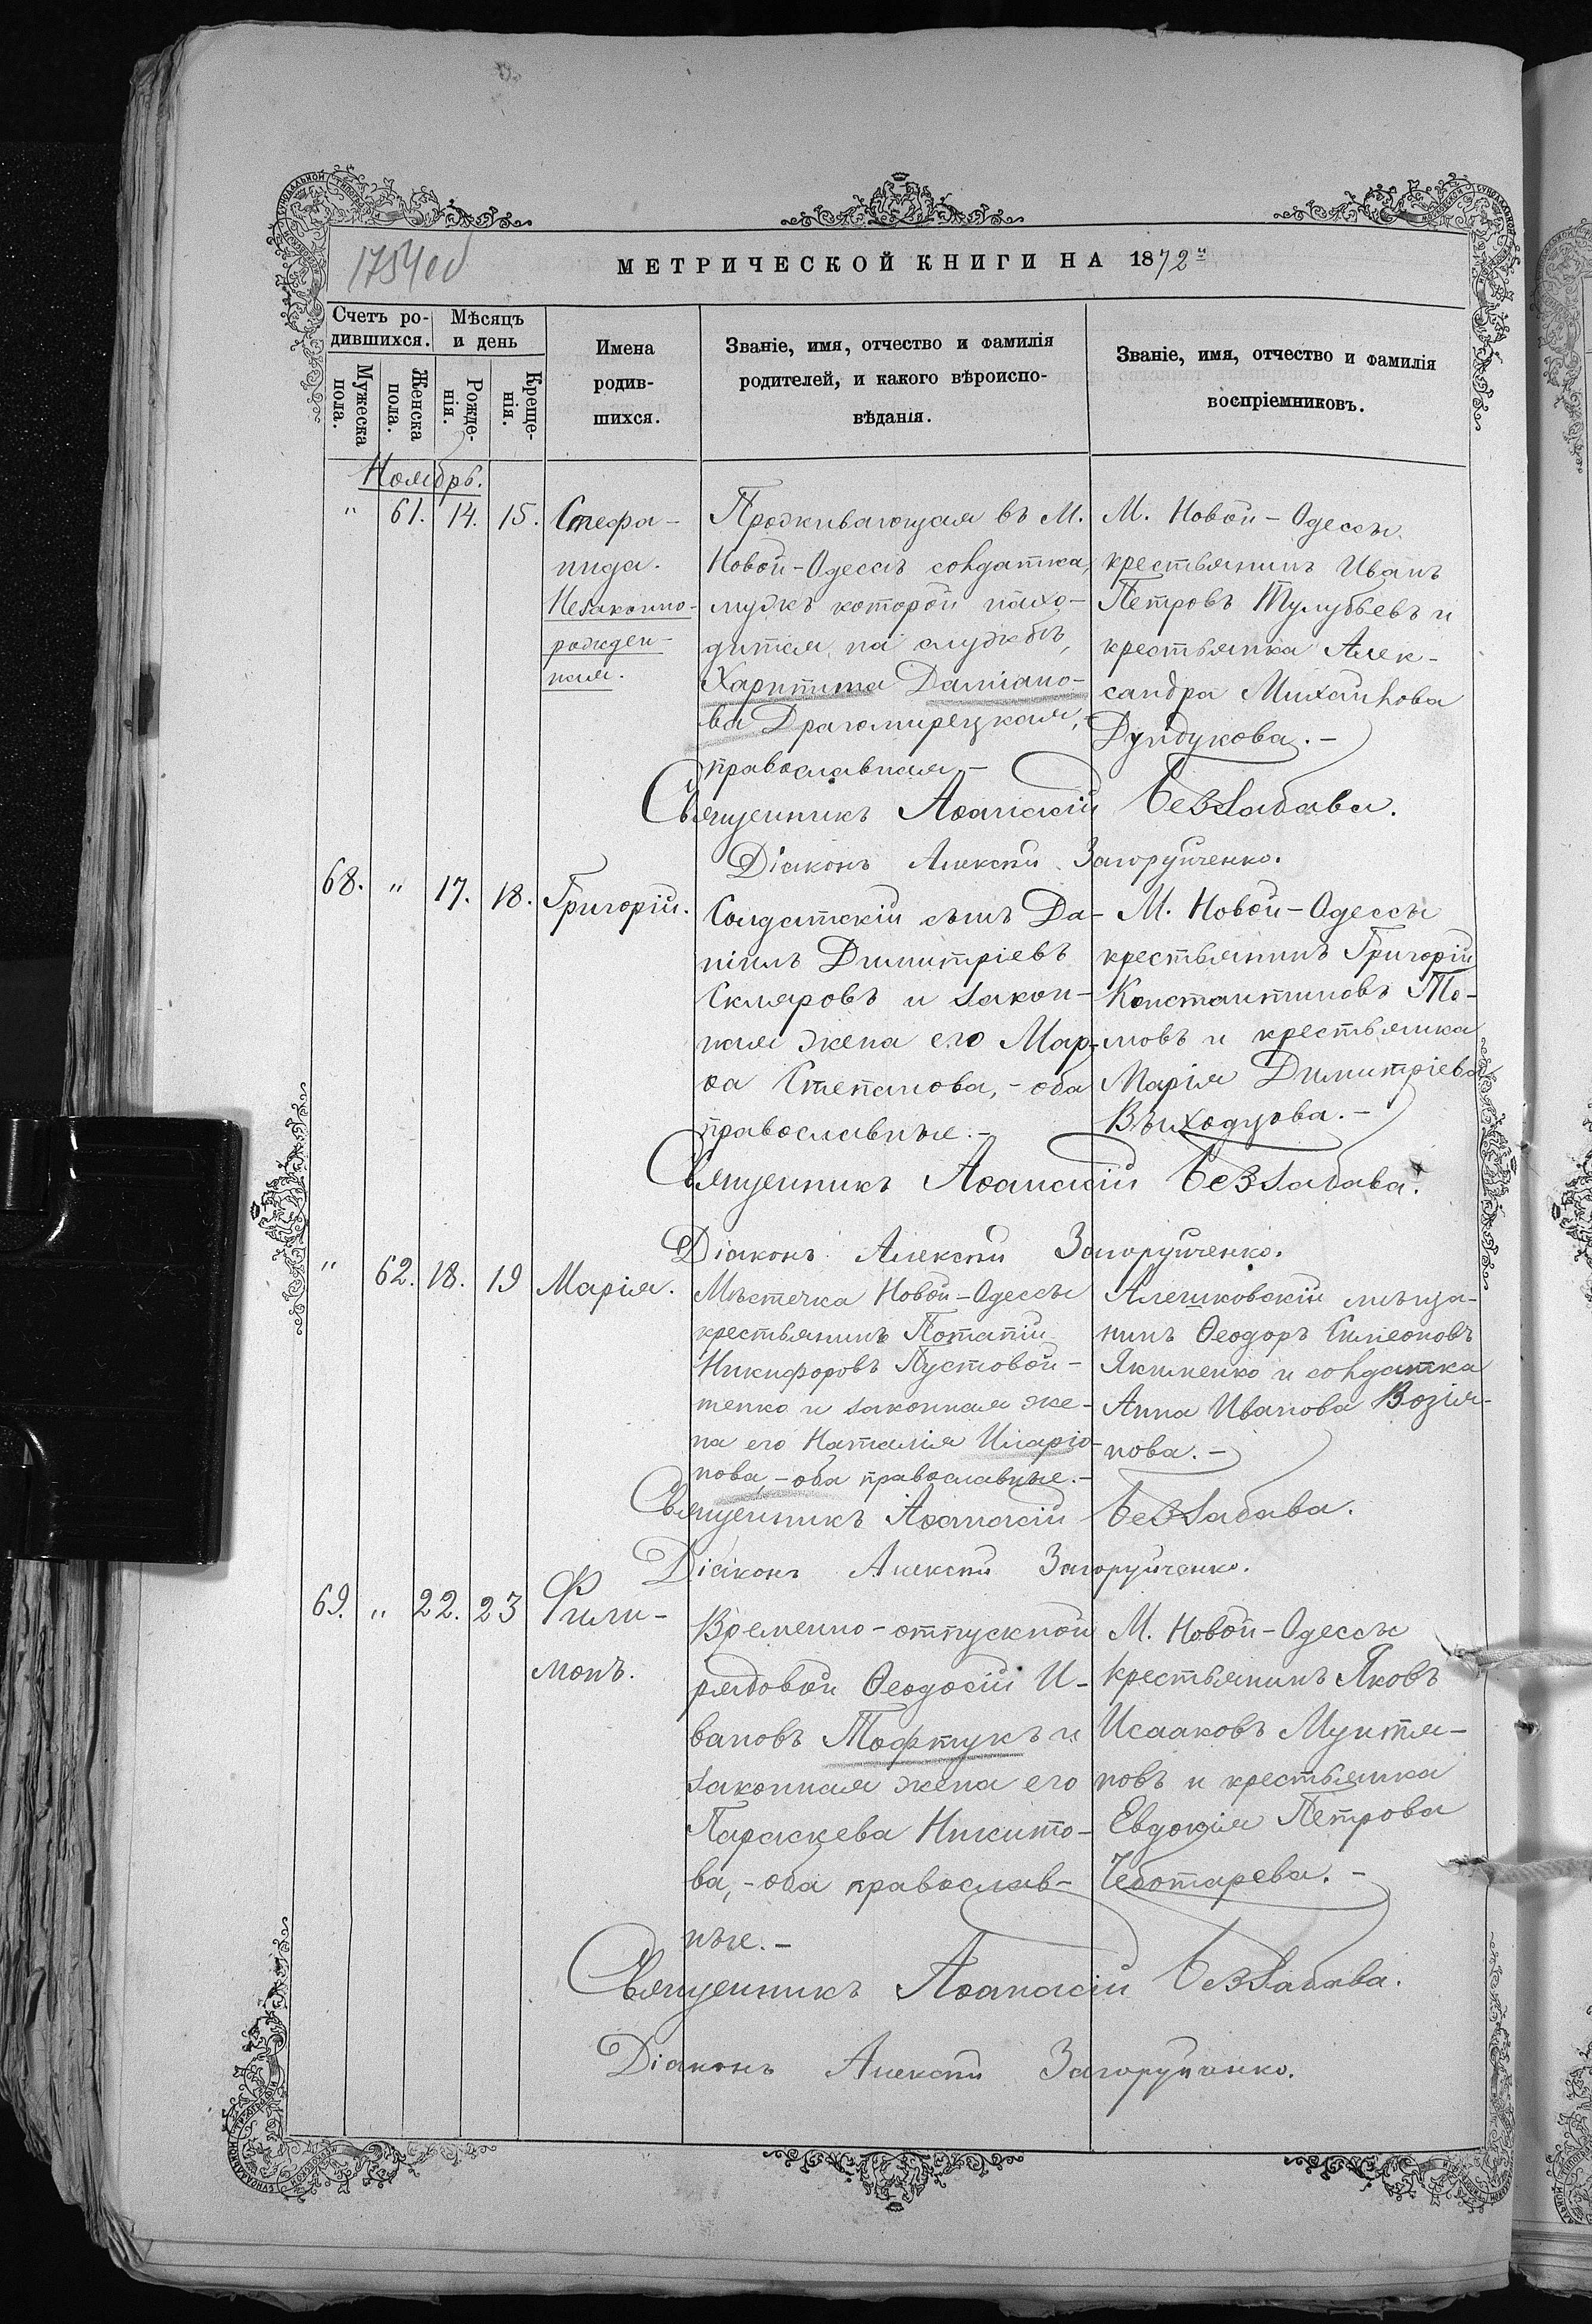 1754 об
МЕТРИЧЕСКОЙ КНИГИ НА 1872й
Счетъ ро-
дившихся.
Мѣсяцъ
и день
Мужеска
пола.
Женска
пола.
Рожде-
нія.
Креще-
нія.
Имена
родив-
шихся.
Званіе, имя, отчество и фамилія
родителей, и какого вѣроиспо-
вѣданія.
Званіе, имя, отчество и фамилія
воспріемниковъ.
Ноябрь.
" 61. 14. 15.
Стефа-
нида.
Незаконно-
рожден-
ная.
Проживающая въ М.
Новой-Одессѣ солдатка,
мужъ которой нахо-
дится на службѣ,
Харитина Даміано-
ва Драгомирецкая,
православная.-
М. Новой-Одессы
крестьянинъ Иванъ
Петровъ Тулубьевъ и
крестьянка Алек-
сандра Михайлова
Дундукова.-
Священникъ Аѳанасій Беззабава.
Діаконъ Алексѣй Загоруйченко.
68. " 17. 18. Григорій.
Солдатскій сынъ Да-
ніилъ Димитріевъ
Скляровъ и закон-
ная жена его Мар-
ѳа Степанова,-оба
православные.-
М. Новой-Одессы
крестьянинъ Григорій
Константиновъ То-
мовъ и крестьянка
Марія Димитріева
Выходцова.-
Священникъ Аѳанасій Беззабава.
Діаконъ Алексѣй Загоруйченко.
" 62. 18. 19 Марія.
Мѣстечка Новой-Одессы
крестьянинъ Потапій
Никифоровъ Пустовой-
тенко и законная же-
на его Наталія Иларіо-
нова,-оба православные.-
Алешковскій мѣща-
нинъ Ѳеодоръ Симеоновъ
Якименко и солдатка
Анна Иванова Возія-
нова.-
Священникъ Аѳанасій Беззабава.
Діаконъ Алексѣй Загоруйченко.
69. " 22. 23
Фили-
монъ.
Временно-отпускной
рядовой Ѳеодосій И-
вановъ Тофтукъ и
законная жена его
Параскева Никито-
ва,-оба православ-
ные.-
М. Новой-Одессы
крестьянинъ Яковъ
Исааковъ Мунтя-
новъ и крестьянка
Евдокія Петрова
Чеботарева.-
Священникъ Аѳанасій Беззабава.
Діаконъ Алексѣй Загоруйченко.